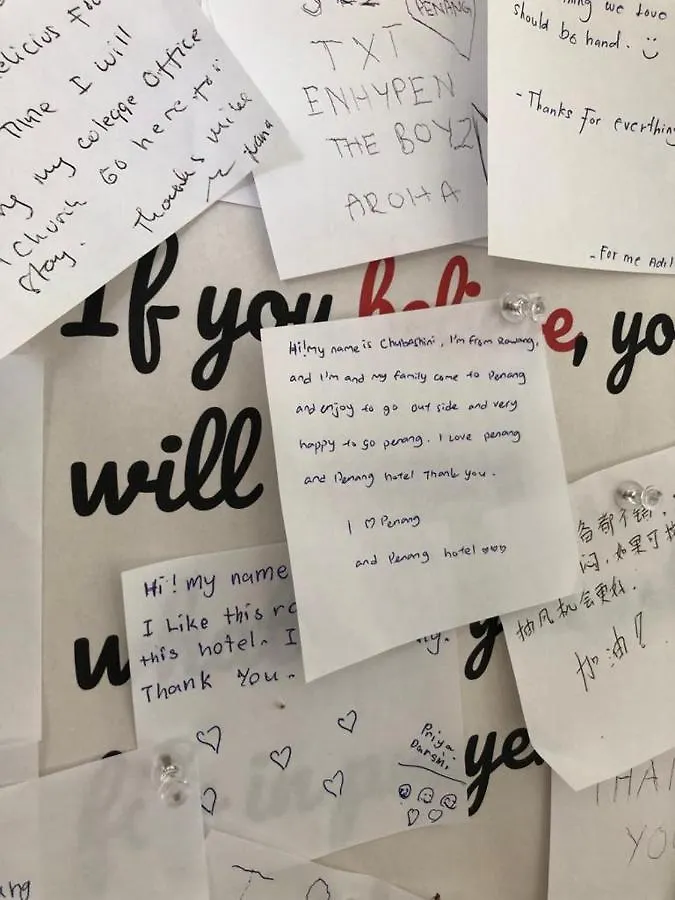 elicius Fo
Time I will
ng my colegge Office
Church Go here to
Stay. Thanks
PENANG
TXT
ENHYPEN
THE BOYZ
AROHA
ng we love
should be hand. :)
-Thanks For everything
-For me Adil
If you believe, yo
will
Hi! my name is Chubashini, I'm from Rawang,
and I'm and my family come to Penang
and enjoy to go out side and very
happy to go penang. I Love penang
and Penang hotel Thank you.
I ♡ Penang
and Penang hotel ♡♡♡
Hi! my name
I Like this ro
this hotel. I
Thank You.
Priya
Darsni
备都不错,
闷,如果可
抽风机会更好.
加油!
ye
THA
YO
ang